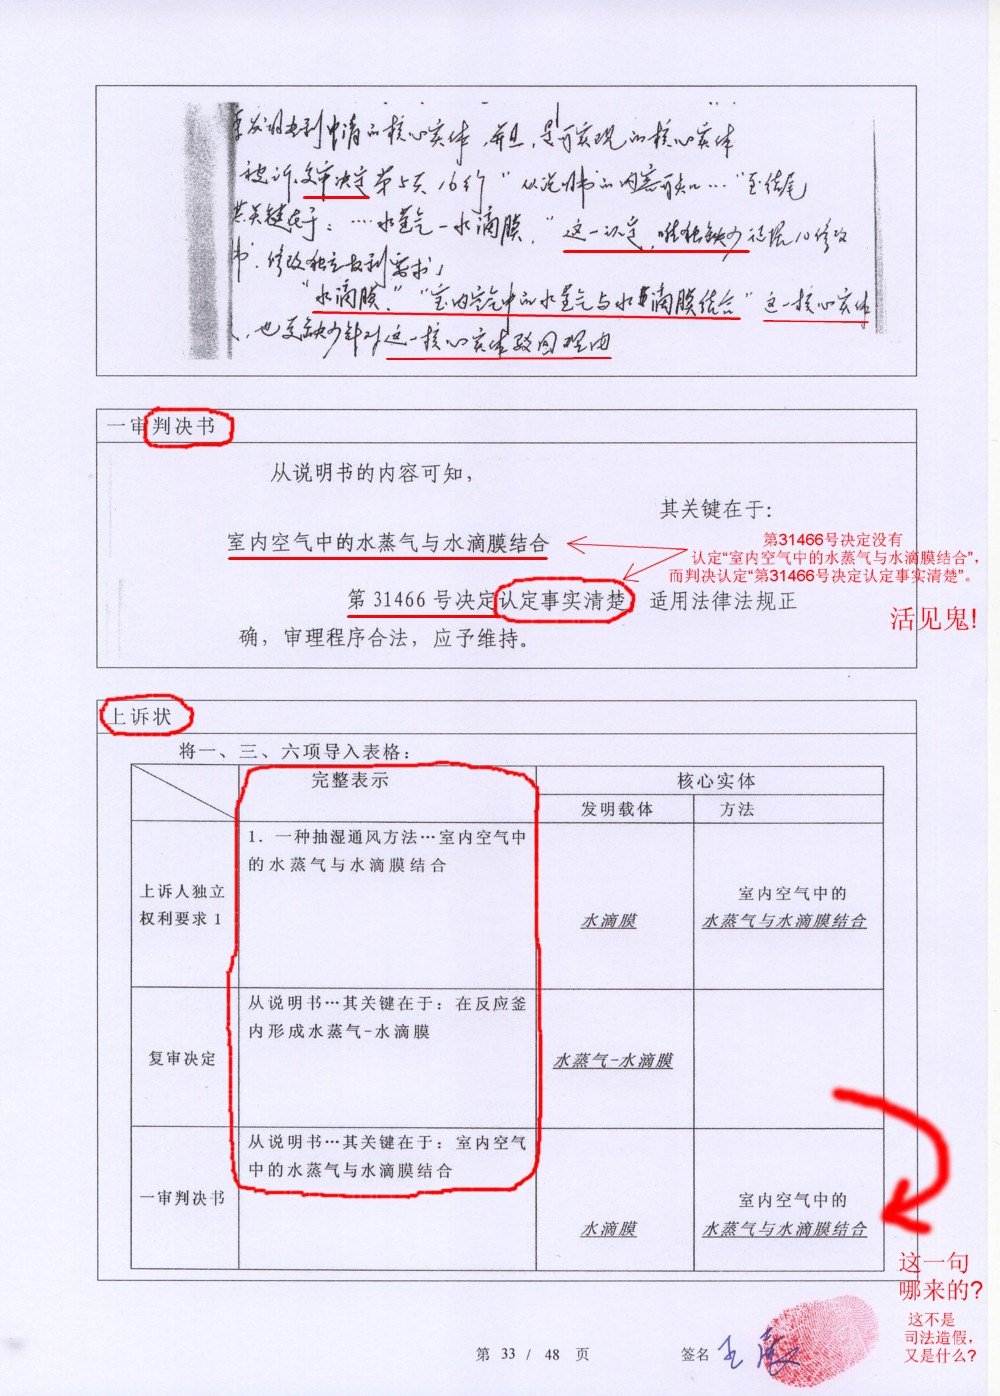 发明专利申请的核心实体，并且，是可实现的核心实体
被诉复审决定第5页16行“从说明书的内容可知…”至结尾
其关键在于：…水蒸气-水滴膜，”这一认定，唯独缺少
书．修改独立权利要求1
“水滴膜”“室内空气中的水蒸气与水滴膜结合”这一核心实体
，也更缺少针对这一核心实体驳回理由
一审判决书
从说明书的内容可知，
其关键在于：
室内空气中的水蒸气与水滴膜结合
第31466号决定没有
认定“室内空气中的水蒸气与水滴膜结合”，
而判决认定“第31466号决定认定事实清楚”。
第 31466 号决定认定事实清楚 适用法律法规正
活见鬼!
确，审理程序合法，应予维持。
上诉状
将一、三、六项导入表格：
完整表示
核心实体
发明载体
方法
上诉人独立
权利要求 1
1．一种抽湿通风方法…室内空气中
的水蒸气与水滴膜结合
水滴膜
室内空气中的
水蒸气与水滴膜结合
复审决定
从说明书…其关键在于：在反应釜
内形成水蒸气-水滴膜
水蒸气-水滴膜
一审判决书
从说明书…其关键在于：室内空气
中的水蒸气与水滴膜结合
水滴膜
室内空气中的
水蒸气与水滴膜结合
这一句
哪来的?
这不是
司法造假，
又是什么?
第 33 / 48 页
签名